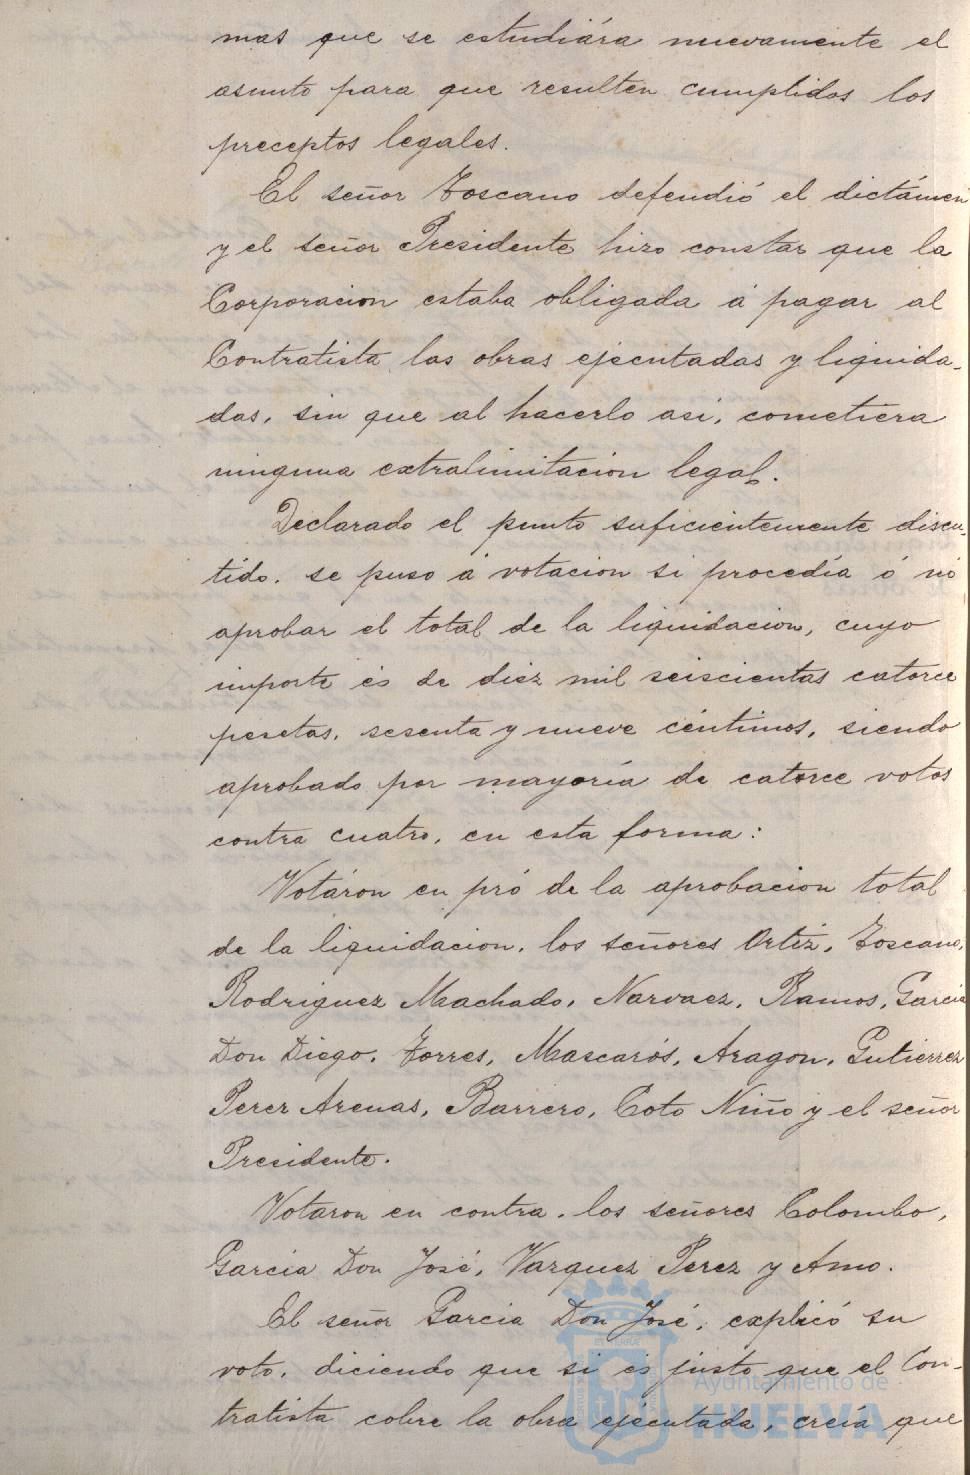 mas que se estudiára nuevamente el
asunto para que resulten cumplidos los
preceptos legales.
El señor Toscano defendió el dictámen
y el señor Presidente hizo constar que la
Corporacion estaba obligada á pagar al
Contratista las obras ejecutadas y liquida-
das, sin que al hacerlo asi, cometiera
ninguna extralimitacion legal.
Declarado el punto suficientemente discu-
tido. se puso á votacion si procedía ó nó
aprobar el total de la liquidacion, cuyo
importe és de diez mil seiscientas catorce
pesetas, sesenta y nueve céntimos, siendo
aprobado por mayoría de catorce votos
contra cuatro, en esta forma:
Votáron en pró de la aprobacion total
de la liquidacion, los señores Ortiz, Toscano,
Rodriguez Machado, Narvaez, Ramos, Garcia
Don Diego, Torres, Mascarós, Aragon, Gutierrez
Perez Arenas, Barrero, Coto Niño y el señor
Presidente.
Votaron en contra, los señores Colombo,
Garcia Don José, Vazquez Perez y Amo.
El señor Garcia Don José, explicó su
voto, diciendo que si és justo que el Con-
tratista cobre la obra ejecutada, creía que
Ayuntamiento de
HUELVA